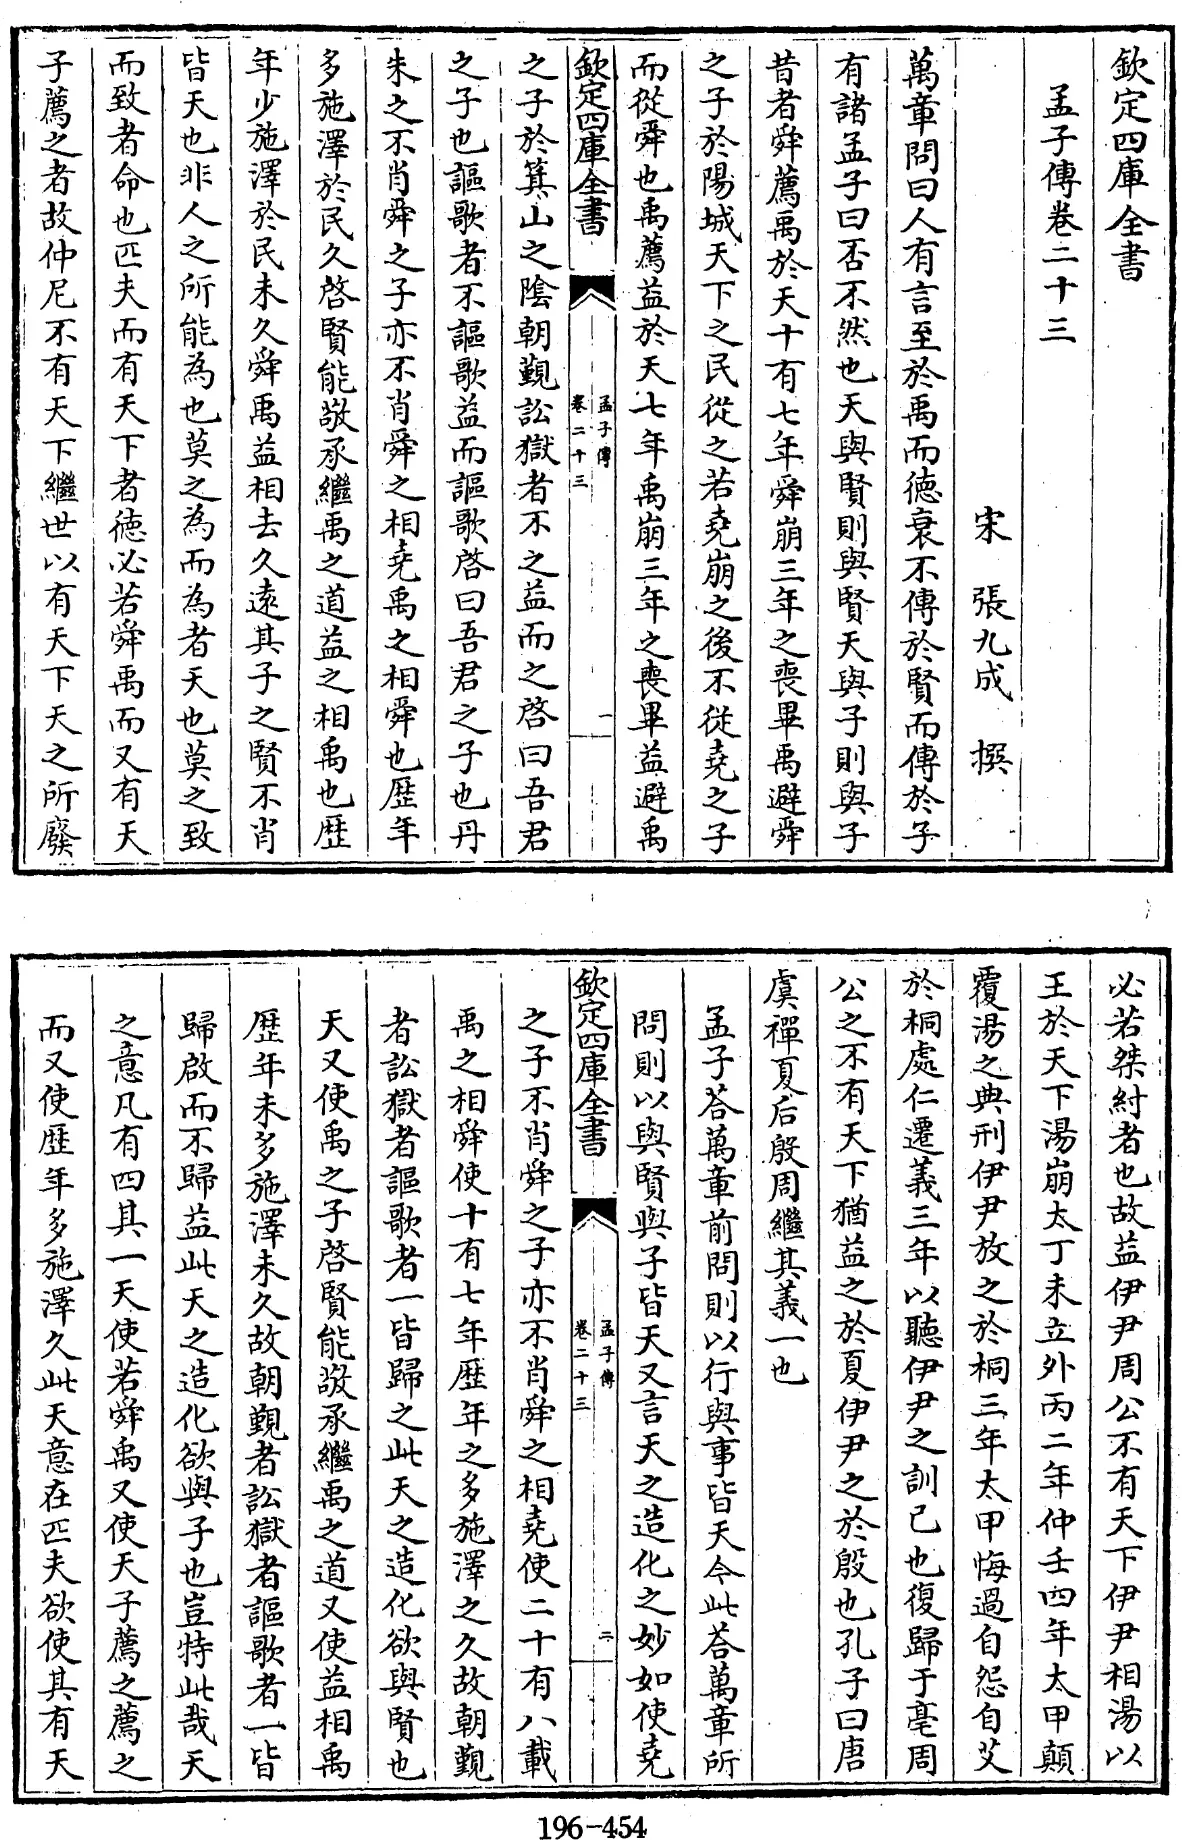 欽定四庫全書
孟子傳卷二十三
宋 張九成 撰
萬章問曰人有言至於禹而德衰不傳於賢而傳於子
有諸孟子曰否不然也天與賢則與賢天與子則與子
昔者舜薦禹於天十有七年舜崩三年之喪畢禹避舜
之子於陽城天下之民從之若堯崩之後不從堯之子
而從舜也禹薦益於天七年禹崩三年之喪畢益避禹
欽定四庫全書
孟子傳
卷二十三
一
之子於箕山之陰朝覲訟獄者不之益而之啓曰吾君
之子也謳歌者不謳歌益而謳歌啓曰吾君之子也丹
朱之不肖舜之子亦不肖舜之相堯禹之相舜也歷年
多施澤於民久啓賢能敬承繼禹之道益之相禹也歷
年少施澤於民未久舜禹益相去久遠其子之賢不肖
皆天也非人之所能為也莫之為而為者天也莫之致
而致者命也匹夫而有天下者德必若舜禹而又有天
子薦之者故仲尼不有天下繼世以有天下天之所廢
必若桀紂者也故益伊尹周公不有天下伊尹相湯以
王於天下湯崩太丁未立外丙二年仲壬四年太甲顛
覆湯之典刑伊尹放之於桐三年太甲悔過自怨自艾
於桐處仁遷義三年以聽伊尹之訓己也復歸于亳周
公之不有天下猶益之於夏伊尹之於殷也孔子曰唐
虞禪夏后殷周繼其義一也
孟子荅萬章前問則以行與事皆天今此荅萬章所
問則以與賢與子皆天又言天之造化之妙如使堯
欽定四庫全書
孟子傳
卷二十三
二
之子不肖舜之子亦不肖舜之相堯使二十有八載
禹之相舜使十有七年歷年之多施澤之久故朝覲
者訟獄者謳歌者一皆歸之此天之造化欲與賢也
天又使禹之子啓賢能敬承繼禹之道又使益相禹
歷年未多施澤未久故朝覲者訟獄者謳歌者一皆
歸啟而不歸益此天之造化欲與子也豈特此哉天
之意凡有四其一天使若舜禹又使天子薦之薦之
而又使歷年多施澤久此天意在匹夫欲使其有天
196-454